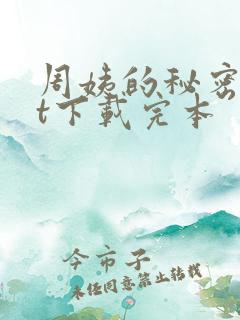 周姨的秘密
t下载完本
今市子
未经同意禁止转载